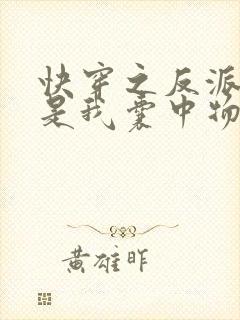 快穿之反派
是我囊中物
黄雄昨